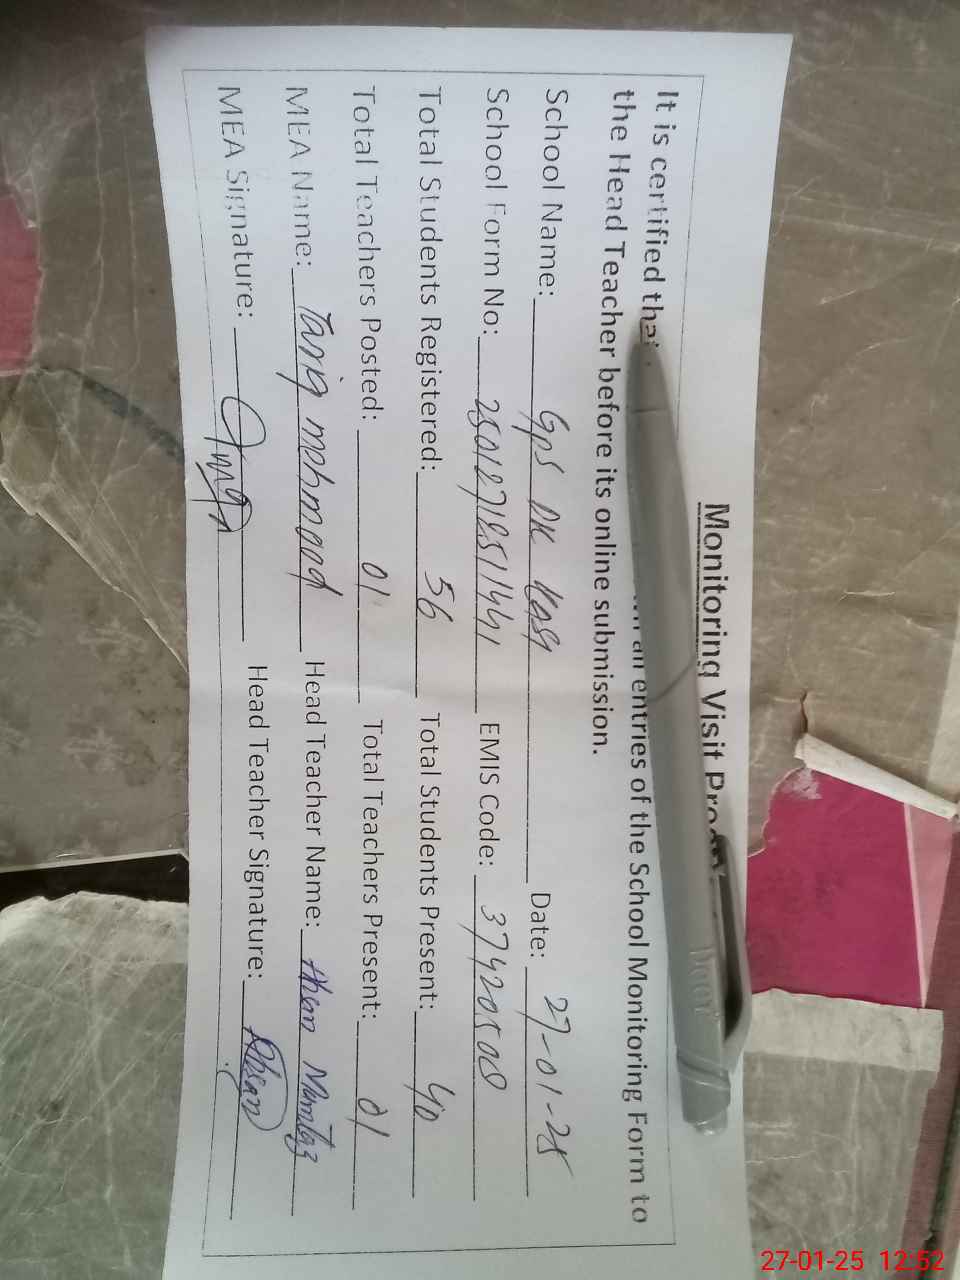 Monitoring Visit Pro
It is certified that all entries of the School Monitoring Form to
the Head Teacher before its online submission.
School Name: GPS DK East Date: 27-01-25
School Form No: EMIS Code: 37420508
Total Students Registered: 56 Total Students Present: 40
Total Teachers Posted: 01 Total Teachers Present: 01
MEA Name: Tariq mehmood Head Teacher Name: Ahsan Mumtaz
MEA Signature: Head Teacher Signature: Ahsan
27-01-25 12:52